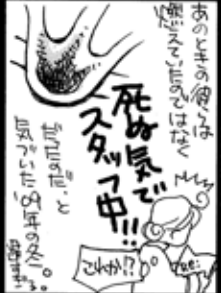 あのときの彼らは
燃えていたのではなく
死ぬ気で
スタッフ中!!
だったのだ、と
気づいた09年の冬。
これか!?